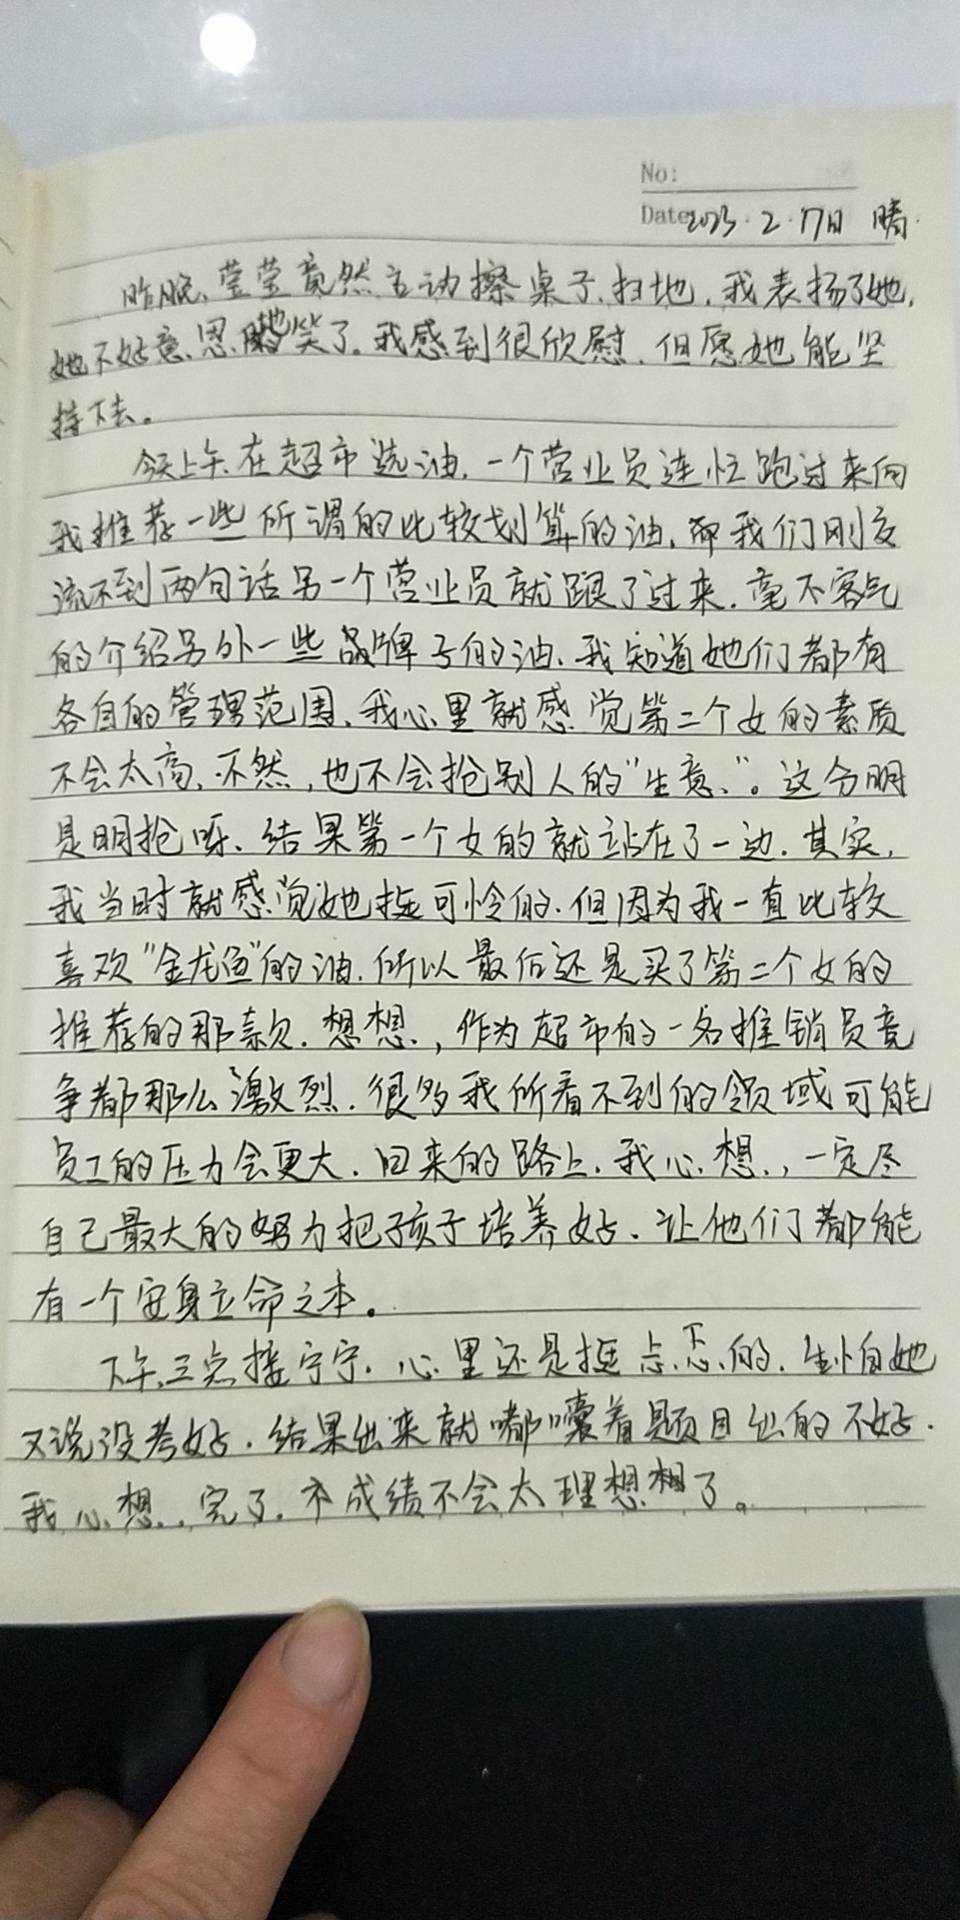 No:
Date 2023.2.17日 晴.
昨晚、莹莹竟然主动擦桌子、扫地，我表扬了她，
她不好意思地笑了。我感到很欣慰，但愿她能坚
持下去。
今天上午、在超市选油，一个营业员连忙跑过来向
我推荐一些所谓的比较划算的油，而我们刚交
流不到两句话另一个营业员就跟了过来，毫不客气
的介绍另外一些品牌子的油、我知道她们都有
各自的管理范围、我心里就感觉第二个女的素质
不会太高，不然，也不会抢别人的“生意”。这分明
是明抢呀、结果第一个女的就站在了一边，其实，
我当时就感觉她挺可怜的，但因为我一直比较
喜欢“金龙鱼”的油，所以最后还是买了第二个女的
推荐的那款，想想，作为超市的一名推销员竞
争都那么激烈，很多我所看不到的领域可能
员工的压力会更大，回来的路上，我心想，一定尽
自己最大的努力把孩子培养好、让他们都能
有一个安身立命之本。
下午三点接宁宁，心里还是挺忐忑的，生怕她
又说没考好，结果出来就嘟囔着题目出的不好.
我心想，完了，成绩不会太理想了。